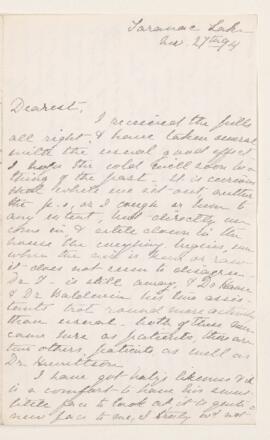 Saranac Lake
27th 94
Dearest,
I received the pills
all right, & have taken several
with the usual good effect
I hope the cold will soon be a
thing of the past. It is curious
that while we sit out
the p.s, or I cough or hem to
any extent, but directly we
come in, & settle down in the
house the coughing begins, even
when the air is
it does not seem to disagree.
Dr T. is still away, & Dr
& Dr Baldwin his two assis-
tants trot round more
than usual. both of these men
came here as patients, there are
two others, patients as well as
Dr
I have got baby's likeness & it
is a comfort to have his sweet
little face to look at, it is quite a
new face to me, I not